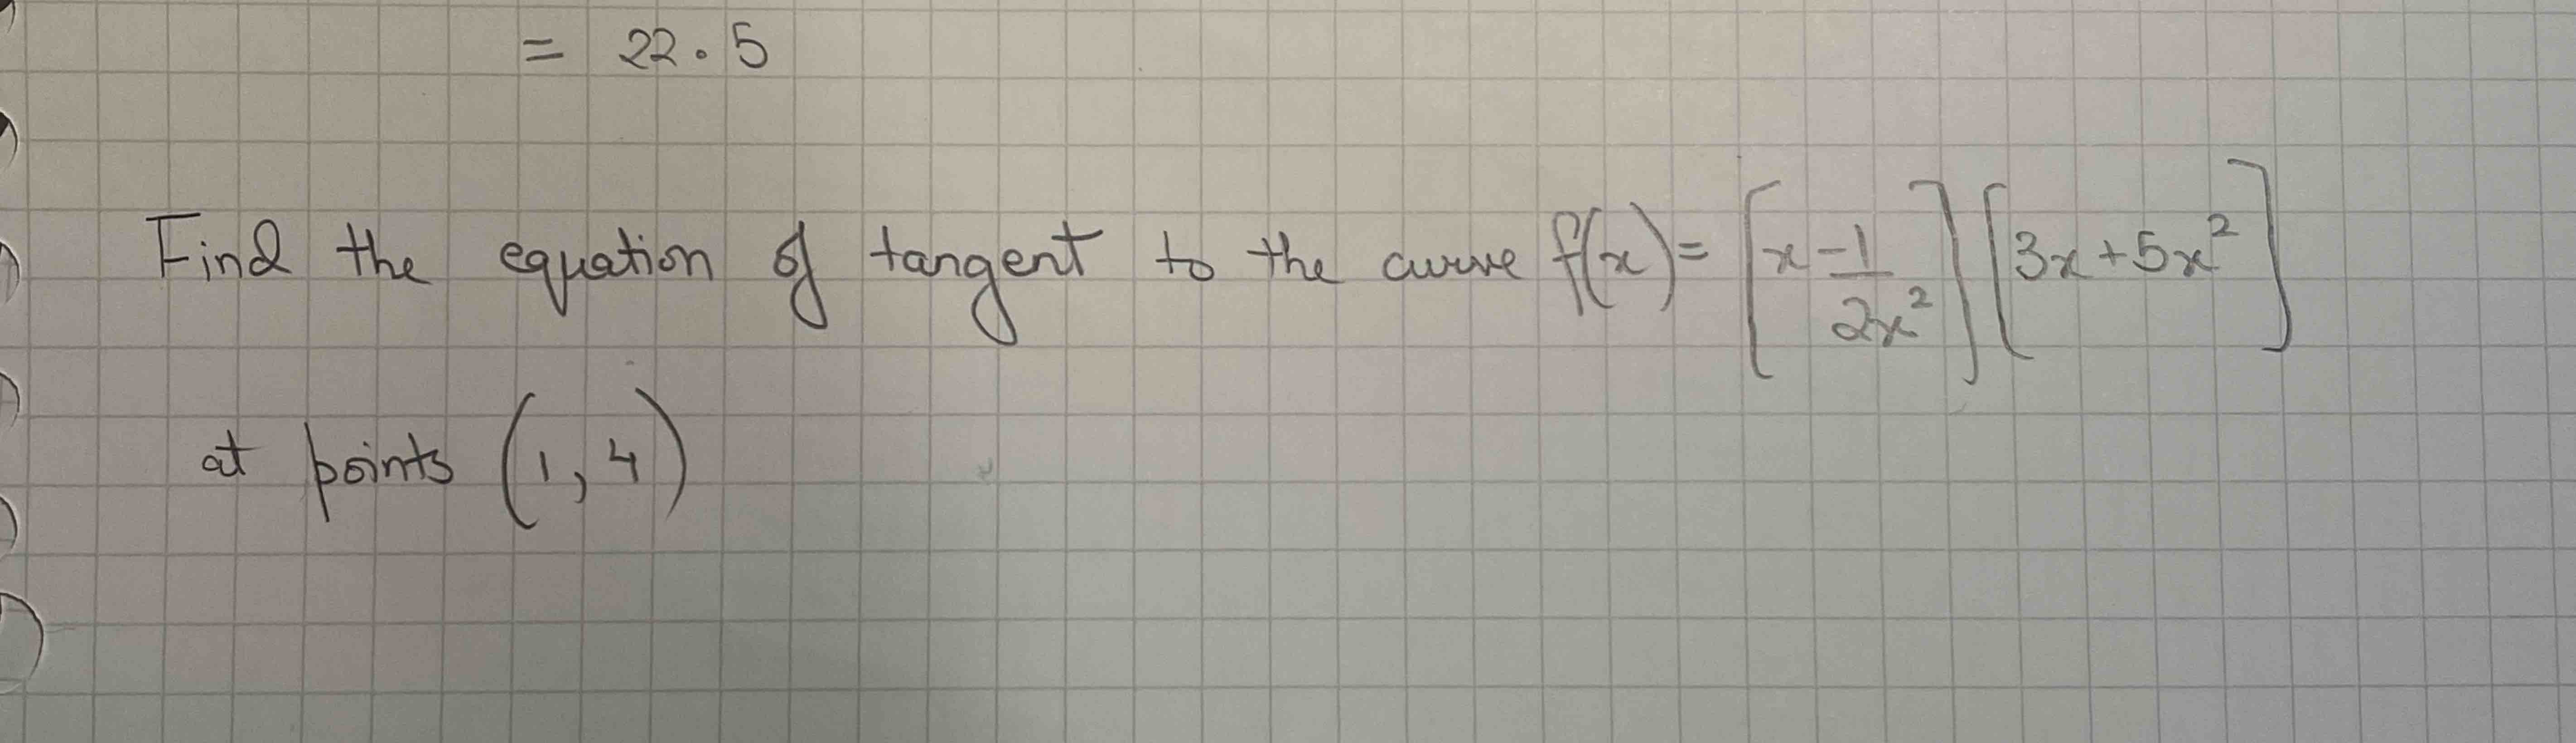 = 22.5
Find the equation of tangent to the curve f(x) = [x - 1/2x²] [3x + 5x²]
at points (1, 4)